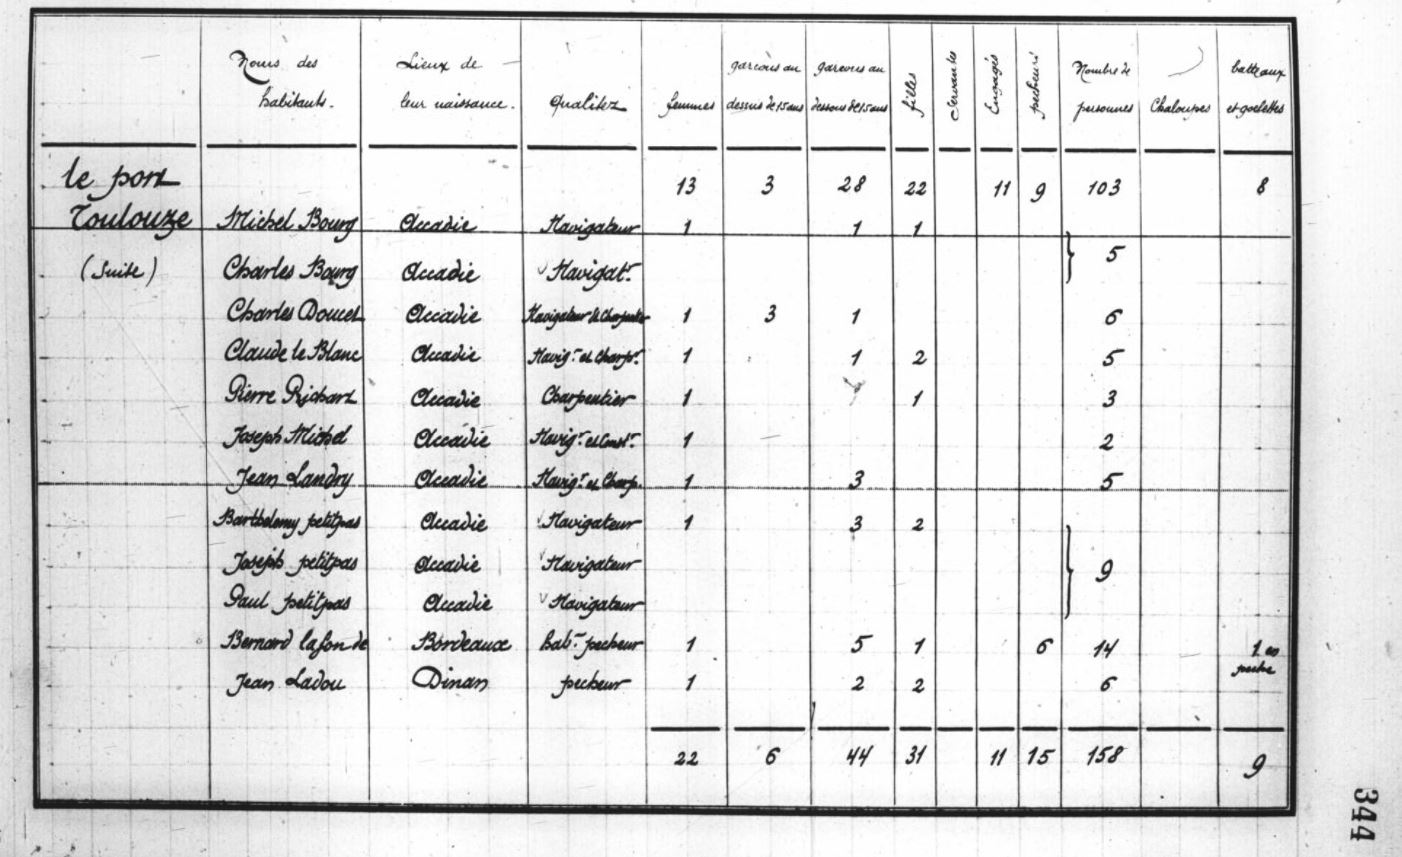 Noms des habitants. Lieux de leur naissance. Qualitez femmes garcons au dessus de 15 ans garcons au dessous de 15 ans filles Servantes Engagés pecheurs Nombre de personnes Chaloupes batteaux et goelettes
le port 13 3 28 22 11 9 103 8
Toulouze Michel Bourg Accadie Navigateur 1 1 1
(Suite) Charles Bourg Accadie Navigatr 5
Charles Doucet Accadie Navigateur et Charpentier 1 3 1 6
Claude le Blanc Accadie Navigr et Charpr 1 1 2 5
Pierre Richard Accadie Charpentier 1 1 3
Joseph Michel Accadie Navigr et Constr 1 2
Jean Landry Accadie Navigr et Charp. 1 3 5
Barthelemy petitpas Accadie Navigateur 1 3 2
Joseph petitpas Accadie Navigateur 9
Paul petitpas Accadie Navigateur
Bernard lafon de Bordeaux habr pecheur 1 5 1 6 14 1 en peche
Jean Ladou Dinan pecheur 1 2 2 6
22 6 44 31 11 15 158 9
344